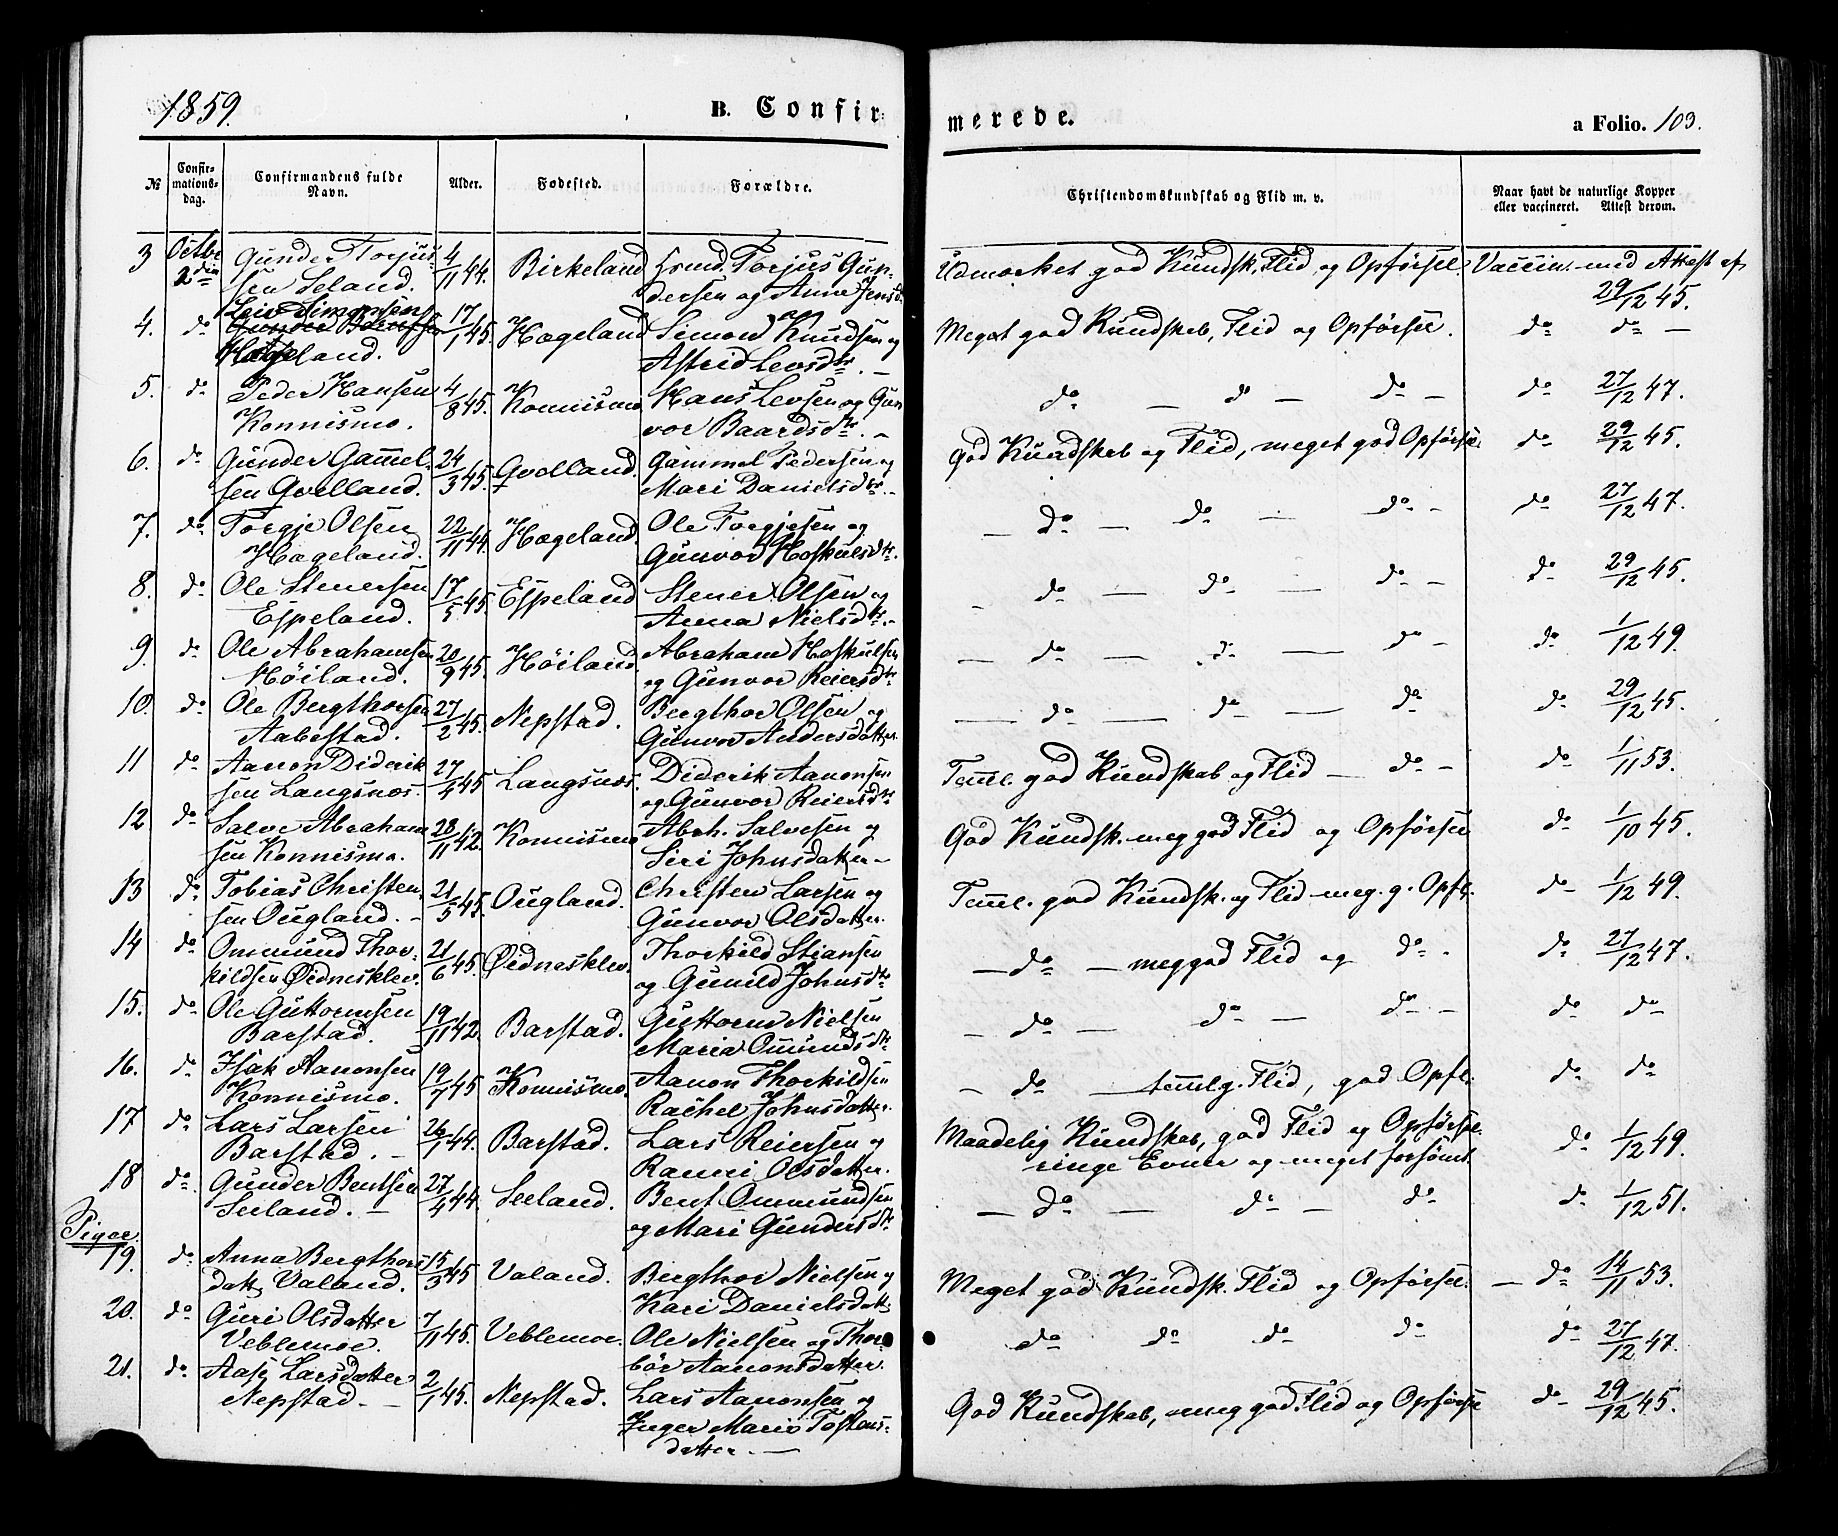 1859.
B. Confir-
merede.
a Folio. 103.
№ Confir-mations-dag. Confirmandens fulde Navn. Alder. Fødested. Forældre. Christendomskundskab og Flid m. v. Naar havt de naturlige Kopper eller vaccineret. Attest derom.
3 Octbr 2den Gunder Torjus- 4/11 44. Birkeland Torjus Gun- Udmærket god Kundsk. Flid og Opførsel. Vaccin. med Attest af
sen Seland. dersen og Anne Jensd. 29/12 45.
4. do Leiv Simonsen 17/1 45. Hægeland Simon Knudsen og Meget god Kundskab, Flid og Opførsel. do do —
Hægeland. Astrid Levsdtr. —
5. do Peder Hansen 4/8 45. Konnismo Hans Levsen og Gun do — do — do — do 27/12 47.
Konnismo. vor Baardsdtr. —
6. do Gunder Gammel- 24/3 45. Qvolland. Gammel Pedersen og God Kundskab og Flid, meget god Opførsel. do 29/12 45.
sen Qvolland. Mari Danielsdtr. —
7. do Torgje Olsen 22/11 44. Hægeland. Ole Torgjesen og — do — do — do — do 27/12 47.
Hægeland. Gunvor Hoskulsdtr.
8. do Ole Stenersen 17/5 45. Espeland Stener Olsen og — do — do — do — do 29/12 45.
Espeland. Anna Nielsdtr. —
9 do Ole Abrahamsen 20/9 45. Høiland. Abraham Hoskulsen — do — do — do — do 1/12 49.
Høiland. og Gunvor Reiersdtr
10. do Ole Bergthorsen 27/2 45. Nepstad. Bergthor Olsen og — do — do — do do 29/12 45.
Aabestad. Gunvor Andersdatter.
11 do Aanon Diderik 27/4 45 Langsnæs. Diderik Aanonsen Temel. god Kundskab og Flid — do — do 1/11 53.
sen Langsnæs. og Gunvor Reiersdtr
12 do Salve Abraham 28/11 42. Konnismo Abrh. Salvesen og God Kundsk. meg god Flid og Opførsel do 1/10 45.
sen Konnismo. Siri Johnsdatter —
13 do Tobias Christen- 21/5 45. Ougland. Christen Larsen og Temel. god Kundsk. og Flid meg. g. Opfl. do — 1/12 49.
sen Ougland. — Gunvor Olsdatter.
14 do Ommund Thor- 21/6 45. Øidnesklev. Thorkild Stiansen — do — meg god Flid og do — do 27/12 47.
kildsen Øidnesklev. og Gunild Johnsdtr
15. do Ole Guttormsen 19/11 42. Barstad. Guttorm Nielsen — do — do — do — do do —
Barstad. Maria Omundsdtr
16. do Isak Aanonsen 19/7 45 Konnismo. Aanon Thorkildsen — do — temelg. Flid, god Opfl. do do —
Konnismo. Rachel Johnsdatter.
17 do Lars Larsen 26/7 44. Barstad. Lars Reiersen og Maadelig Kundskab, god Flid og Opførsel. do 1/12 49.
Barstad. — Ranni Olsdatter. ringe Evner og meget forsømt
18 do Gunder Bentsen 27/4 44. Seeland. Bent Ommundsen — do — do — do do 1/12 51.
Seeland. — og Mari Gundersdtr
Piger.
19. do Anna Bergthors 15/3 45 Valand. Bergthor Nielsen og Meget god Kundsk. Flid og Opførsel. — do — 14/11 53.
datt Valand. Kari Danielsdatt
20. do Guri Olsdatter 7/11 45. Veblemoe. Ole Nielsen og Thor do do do do do 27/12 47.
Veblemoe. bør Aanonsdatter.
21. do Aase Larsdatter 2/1 45. Nepstad. Lars Aanonsen og God Kundskab, meg god Flid og Opførsel do 29/12 45.
Nepstad — Inger Marie Tostens-
datter. —